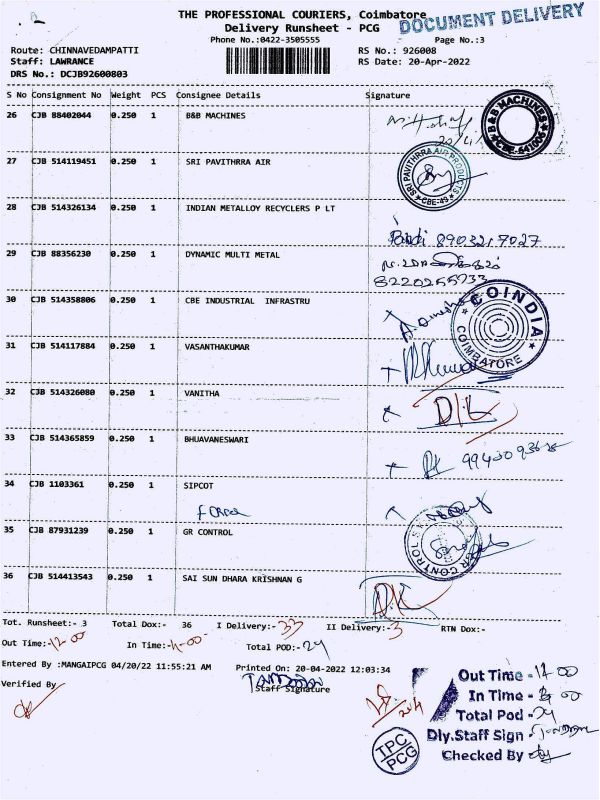 THE PROFESSIONAL COURIERS, Coimbatore
DOCUMENT DELIVERY
Delivery Runsheet - PCG
Phone No.:0422-3505555
Page No.:3
Route: CHINNAVEDAMPATTI
RS No.: 926008
Staff: LAWRANCE
RS Date: 20-Apr-2022
DRS No.: DCJB92600803
S No Consignment No Weight PCS Consignee Details Signature
26 CJB 88402044 0.250 1 B&B MACHINES
B&B MACHINES
CBE-641006
27 CJB 514119451 0.250 1 SRI PAVITHRRA AIR
SRI PAVITHRRA AIR PRODUCTS
CBE-49
28 CJB 514326134 0.250 1 INDIAN METALLOY RECYCLERS P LT
8903217027
29 CJB 88356230 0.250 1 DYNAMIC MULTI METAL
8220255733
30 CJB 514358806 0.250 1 CBE INDUSTRIAL INFRASTRU
COINDIA
COIMBATORE
31 CJB 514117884 0.250 1 VASANTHAKUMAR
32 CJB 514326080 0.250 1 VANITHA
D/L
33 CJB 514365859 0.250 1 BHUAVANESWARI
34 CJB 1103361 0.250 1 SIPCOT
35 CJB 87931239 0.250 1 GR CONTROL
36 CJB 514413543 0.250 1 SAI SUN DHARA KRISHNAN G
Tot. Runsheet:- 3 Total Dox:- 36 I Delivery:- 33 II Delivery:- 3 RTN Dox:-
Out Time:- In Time:- Total POD:- 24
Entered By :MANGAIPCG 04/20/22 11:55:21 AM Printed On: 20-04-2022 12:03:34
Verified By
Staff Signature
Out Time -
In Time -
Total Pod -
Dly.Staff Sign -
Checked By
TPC
PCG